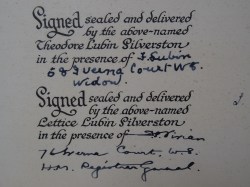 Signed sealed and delivered
by the above-named
Theodore Lubin Silverston
in the presence of S. Lubin
Court W8.
Widow.
Signed sealed and delivered
by the above-named
Lettice Lubin Silverston
in the presence of
Court, W.8.
Registrar General